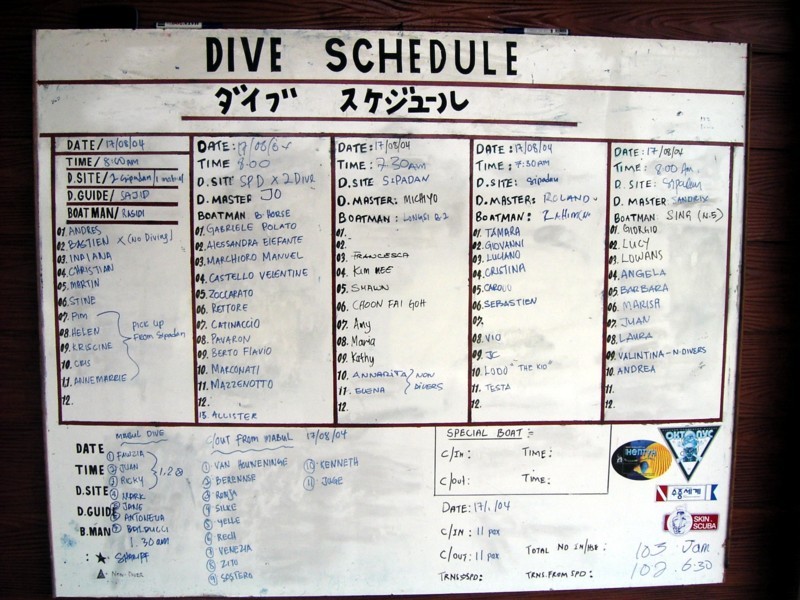 DIVE SCHEDULE
ダイブ スケジュール
DATE/ 17/08/04
TIME/ 8:00AM
D.SITE/ 2 Sipadan / 1 mabul
D.GUIDE/ SAJID
BOATMAN/ RASIDI
01. ANDRES
02. BASTIEN X (No Diving)
03. INDIANA
04. CHRISTIAN
05. MARTIN
06. STINE
07. Pim
08. HELEN
09. KRISCINE
10. CRIS
11. ANNEMARRIE
12.
PICK UP
FROM Sipadan
DATE: 17/08/
TIME 8:00
D.SITE SPD X 2 DIVE
D.MASTER JO
BOATMAN B. HORSE
01. GABRIELE POLATO
02. ALESSANDRA ELEFANTE
03. MARCHIORO MANUEL
04. CASTELLO VELENTINE
05. ZOCCARATO
06. RETTORE
07. CATINACCIO
08. PAVARON
09. BERTO FLAVIO
10. MARCONATI
11. MAZZENOTTO
12.
13. ALLISTER
DATE: 17/08/04
TIME: 7:30AM
D.SITE SIPADAN
D.MASTER: MICHIYO
BOATMAN:
01.
02.
03. FRANCESCA
04. KIM MEE
05. SHAWN
06. CHOON FAI GOH
07. Amy
08. Maria
09. Kathy
10. ANNARITA
11. ELENA
12.
NON
DIVERS
DATE: 17/08/04
TIME: 7:30AM
D.SITE: Sipadan
D.MASTER: ROLAND
BOATMAN:
01. TAMARA
02. GIOVANNI
03. LUCIANO
04. CRISTINA
05.
06. SEBASTIEN
07.
08. VIO
09. JC
10. LODO "THE KID"
11. TESTA
12.
DATE: 17/08/04
TIME: 8:00 Am.
D.SITE: Sipadan
D.MASTER SANDRIX
BOATMAN SING (N.5)
01. GIORGIO
02. LUCY
03. LOWANS
04. ANGELA
05. BARBARA
06. MARISA
07. JUAN
08. LAURA
09. VALINTINA-N.DIVERS
10. ANDREA
11.
12.
DATE
TIME
D.SITE
D.GUIDE
B.MAN
MABUL DIVE
1 FAUZIA
2 JUAN
3 RICKY
4 MARK
5 JANE
6 ANTONELLA
7 BALDUCCI
1.30am
: ★ SHARIFF
▲ - Non-Diver
C/OUT FROM MABUL 17/08/04
1 VAN HOUWENINGE
2 BERENNSE
3 RONJA
4 SILKE
5 YELLE
6 RECH
7 VENEZIA
8 ZITO
9 SOSTERO
10 KENNETH
11 JOGE
SPECIAL BOAT:
C/IN: TIME:
C/OUT: TIME:
DATE: 17/ /04
C/IN: 11 pax
C/OUT: 11 pax
TOTAL NO IN/HSE:
TRNS.FROM SPD:
103 Jam
102 6.30
수중세계
SKIN SCUBA